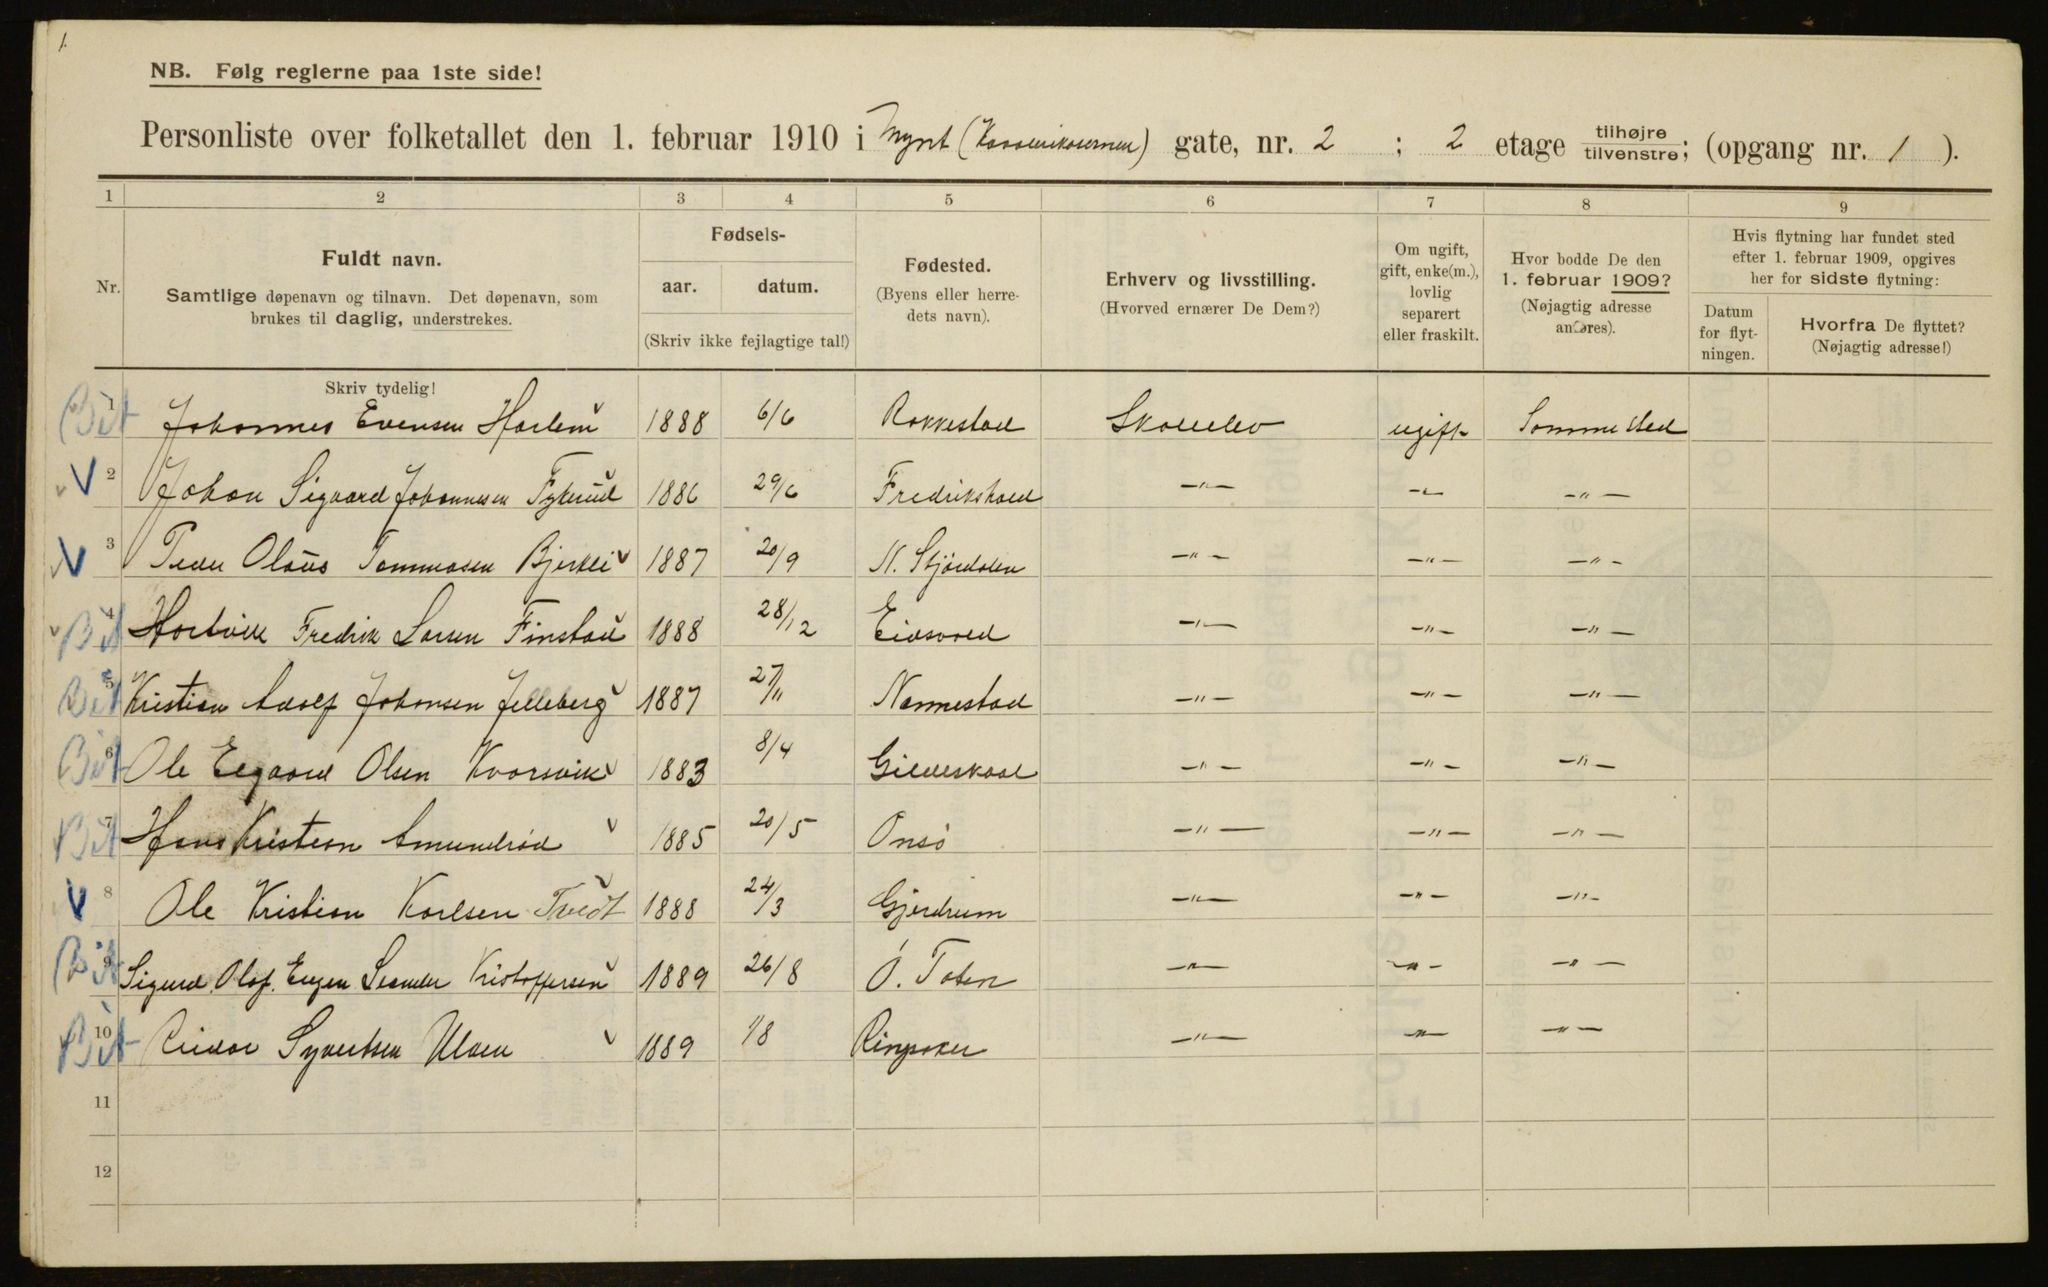 1.
NB. Følg reglerne paa 1ste side!
Personliste over folketallet den 1. februar 1910 i Mynt ( ) gate, nr. 2 ; 2 etage tilhøjre / tilvenstre; (opgang nr. 1 ).
1 2 3 4 5 6 7 8 9
Nr.
Fuldt navn.
Samtlige døpenavn og tilnavn. Det døpenavn, som
brukes til daglig, understrekes.
Skriv tydelig!
Fødsels-
aar. datum.
(Skriv ikke fejlagtige tal!)
Fødested.
(Byens eller herre-
dets navn).
Erhverv og livsstilling.
(Hvorved ernærer De Dem?)
Om ugift,
gift, enke(m.),
lovlig
separert
eller fraskilt.
Hvor bodde De den
1. februar 1909?
(Nøjagtig adresse
anføres).
Hvis flytning har fundet sted
efter 1. februar 1909, opgives
her for sidste flytning:
Datum
for flyt-
ningen.
Hvorfra De flyttet?
(Nøjagtig adresse!)
1 Johannes Evensen Harlem 1888 6/6 Rakkestad Skoleelev ugift Samme sted
2 Johan Sigvard Johannesen 1886 29/6 Fredrikshald -"- -"- -"-
3 Peder Olaus Tommasen Bjerkli 1887 20/9 N. Stjördalen -"- -"- -"-
4 Hartvik Fredrik Larsen Finstad 1888 28/12 Eidsvold -"- -"- -"-
5 Kristian Adolf Johansen Jelleberg 1887 27/11 Nannestad -"- -"- -"-
6 Ole Edgard Olsen Kvarsvik 1883 8/4 Gildeskaal -"- -"- -"-
7 Hans Kristian Amundröd 1885 20/5 Onsö -"- -"- -"-
8 Ole Kristian Karlsen Tvedt 1888 24/3 Gjerdrum -"- -"- -"-
9 Sigurd Olaf. Eugen Leander Kristoffersen 1889 26/8 Ö. Toten -"- -"- -"-
10 Reidar Syvertsen Ulven 1889 1/8 Ringsaker -"- -"- -"-
11
12